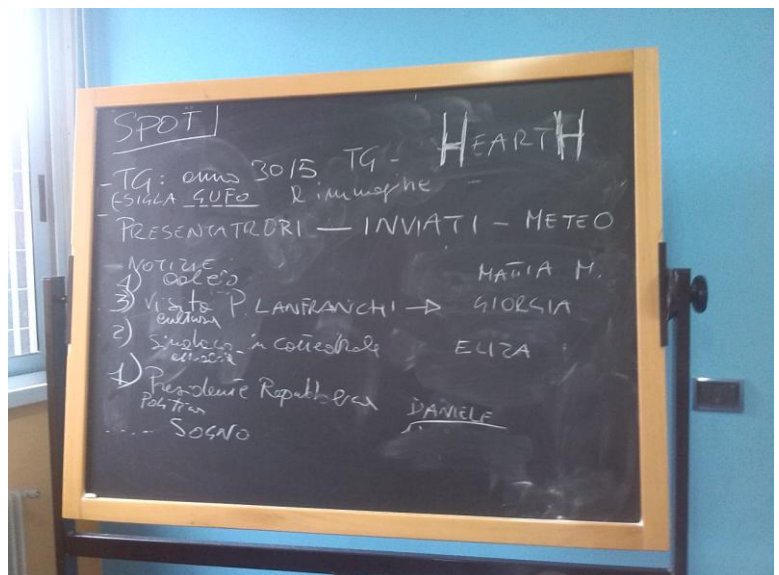 SPOT
HEARTH
- TG: anno 3015 TG -
(E SIGLA GUFO
- PRESENTATRORI — INVIATI - METEO
- NOTIZIE
4) MATTIA M.
3) Visita P. LANFRANCHI → GIORGIA
cultura
2) Sindaco in cattedrale ELIZA
1) Presidente Repubblica
Politica DANIELE
..... SOGNO